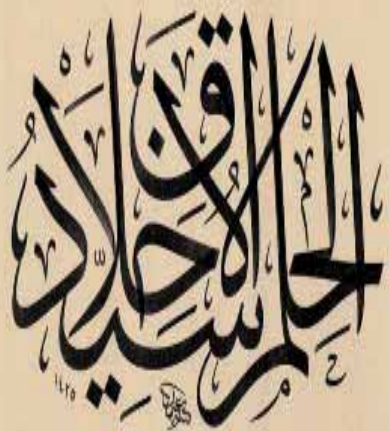 الحلم سيد الأخلاق
١٤٢٥